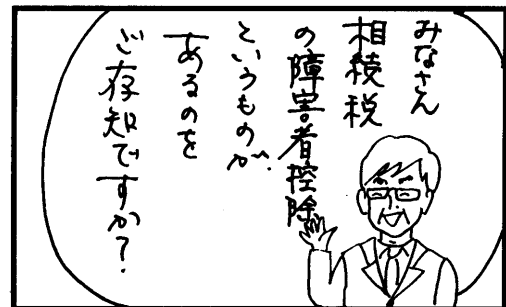 みなさん
相続税
の障害者控除
というものが
あるのを
ご存知ですか？